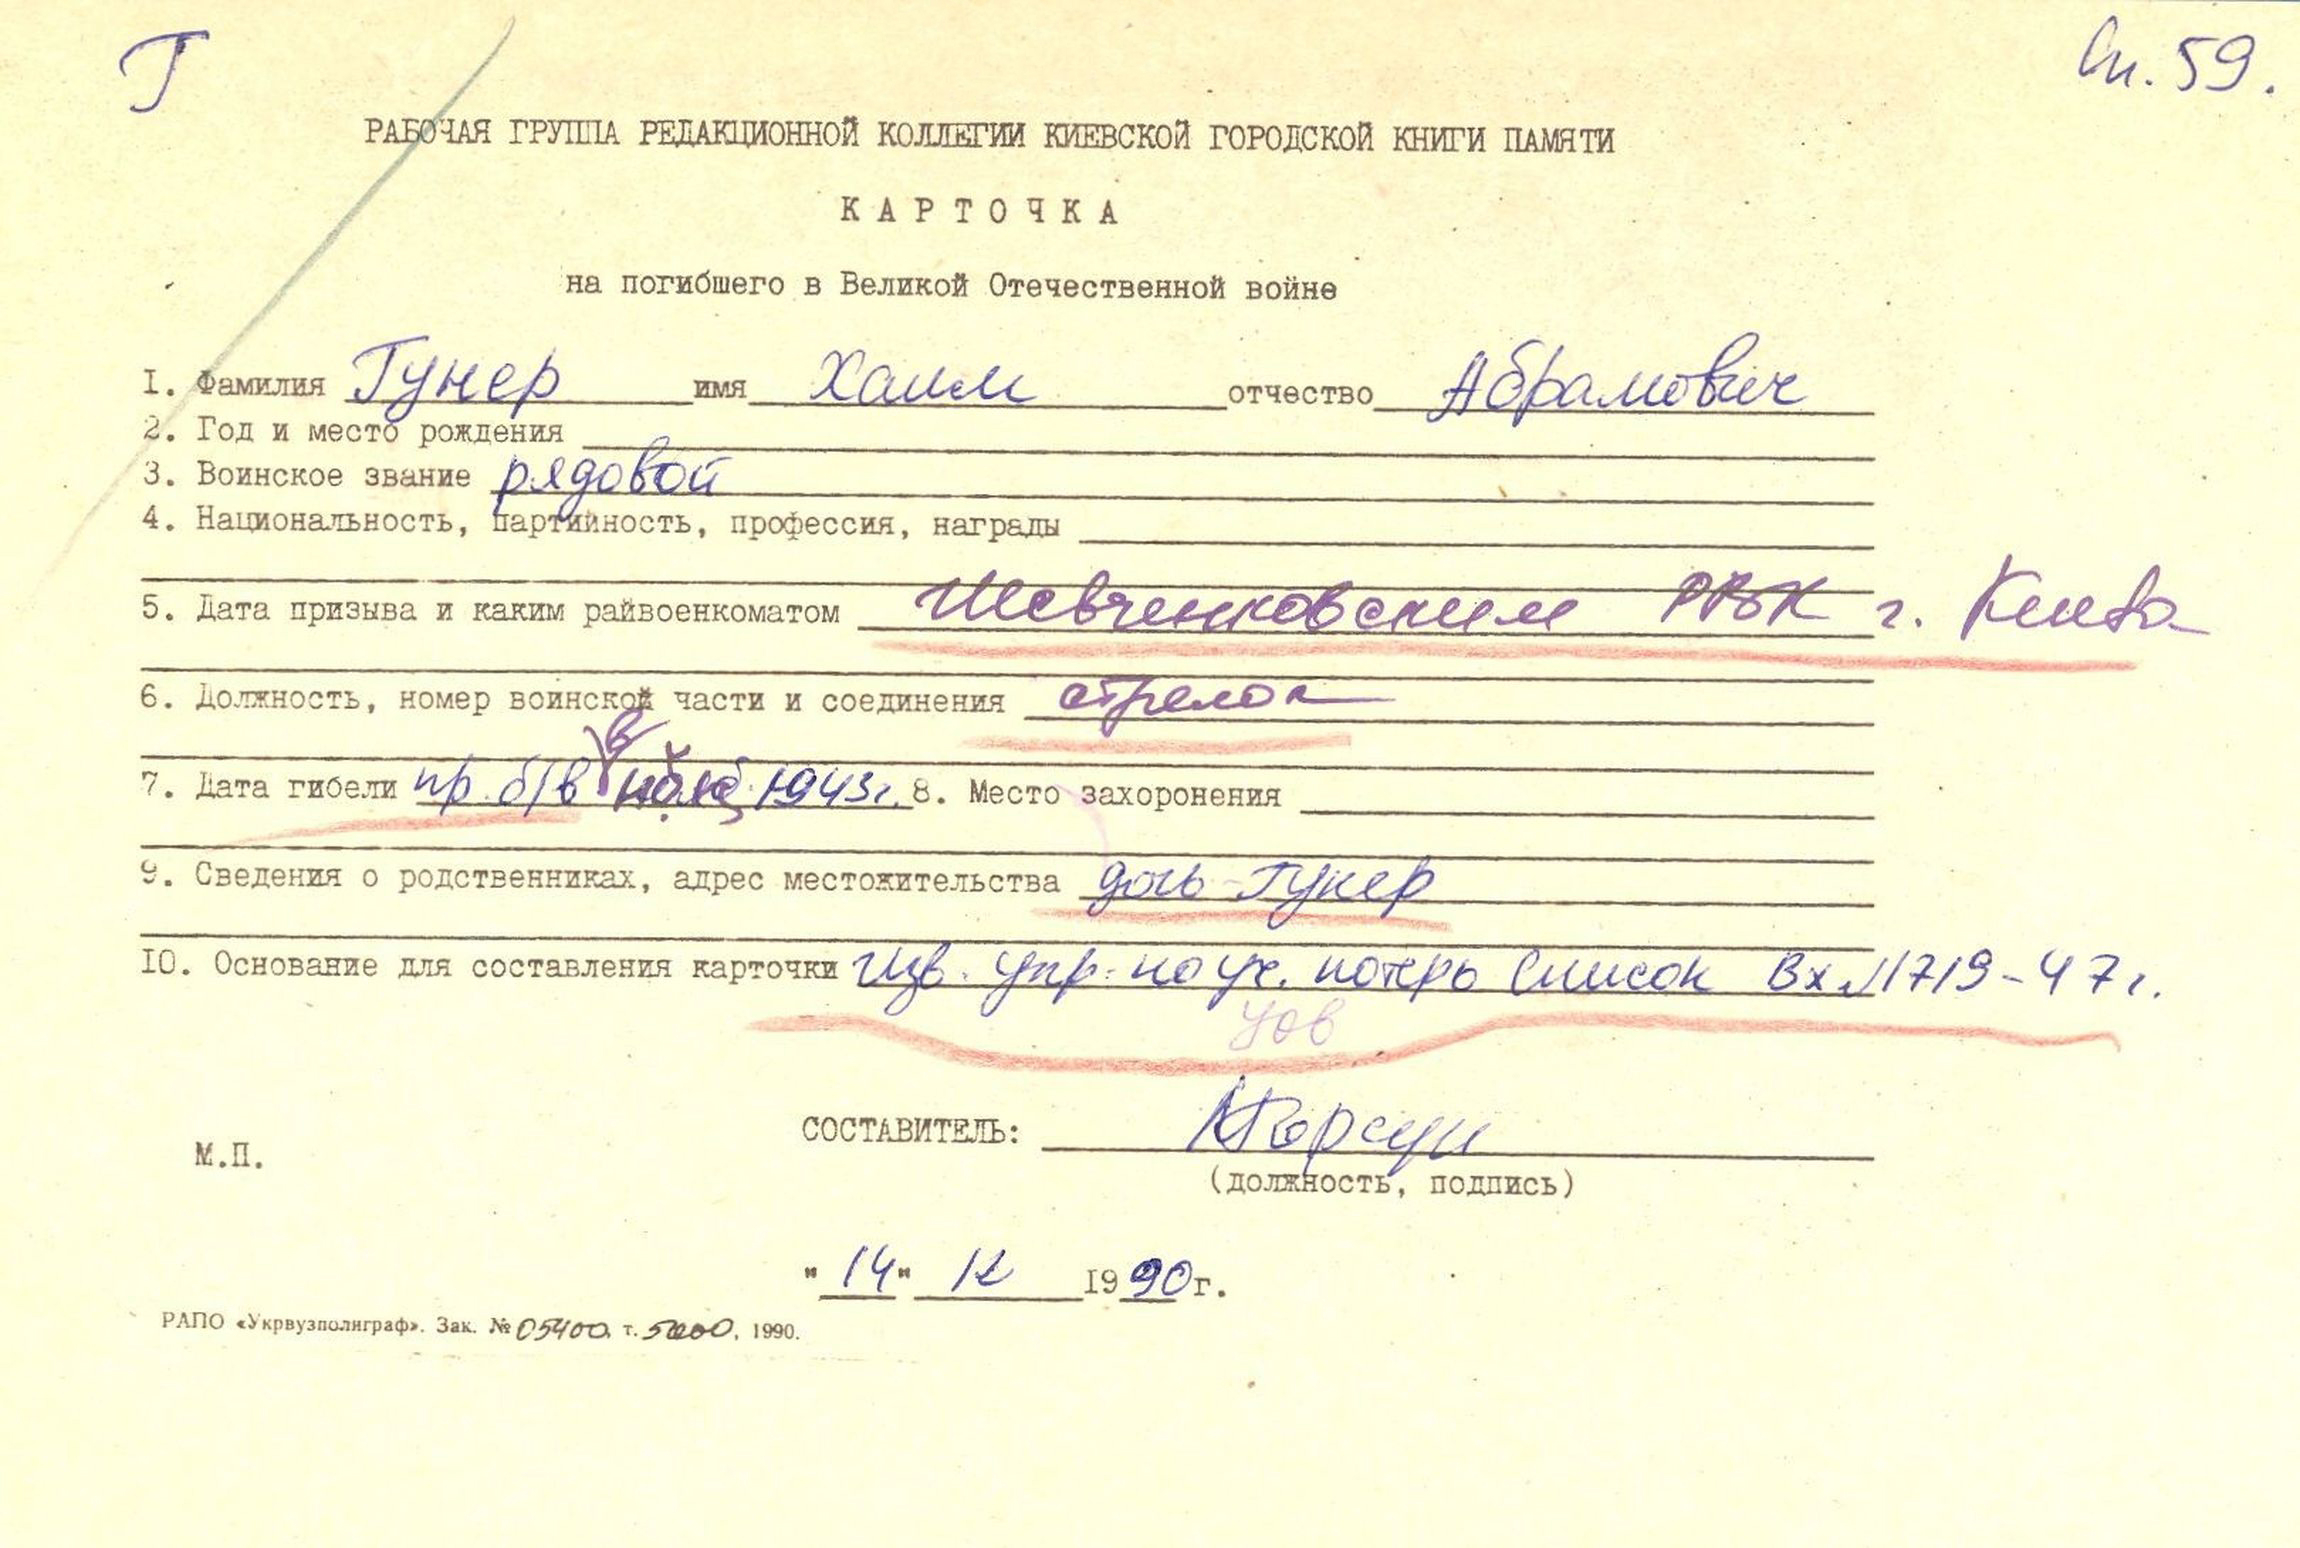 Г
Сп. 59.
РАБОЧАЯ ГРУППА РЕДАКЦИОННОЙ КОЛЛЕГИИ КИЕВСКОЙ ГОРОДСКОЙ КНИГИ ПАМЯТИ
КАРТОЧКА
на погибшего в Великой Отечественной войне
I. Фамилия Гунер имя Хаим отчество Абрамович
2. Год и место рождения
3. Воинское звание рядовой
4. Национальность, партийность, профессия, награды
5. Дата призыва и каким райвоенкоматом Шевченковским РВК г. Киева
6. Должность, номер воинской части и соединения стрелок
7. Дата гибели пр. б/в в нояб. 1943г. 8. Место захоронения
9. Сведения о родственниках, адрес местожительства дочь-Гунер
10. Основание для составления карточки Изв. упр. по уч. потерь Список Вх №1719-47г.
СОСТАВИТЕЛЬ:
М.П.
(должность, подпись)
"14" 1990г.
РАПО «Укрвузполиграф». Зак. № 05400. т. 5000. 1990.